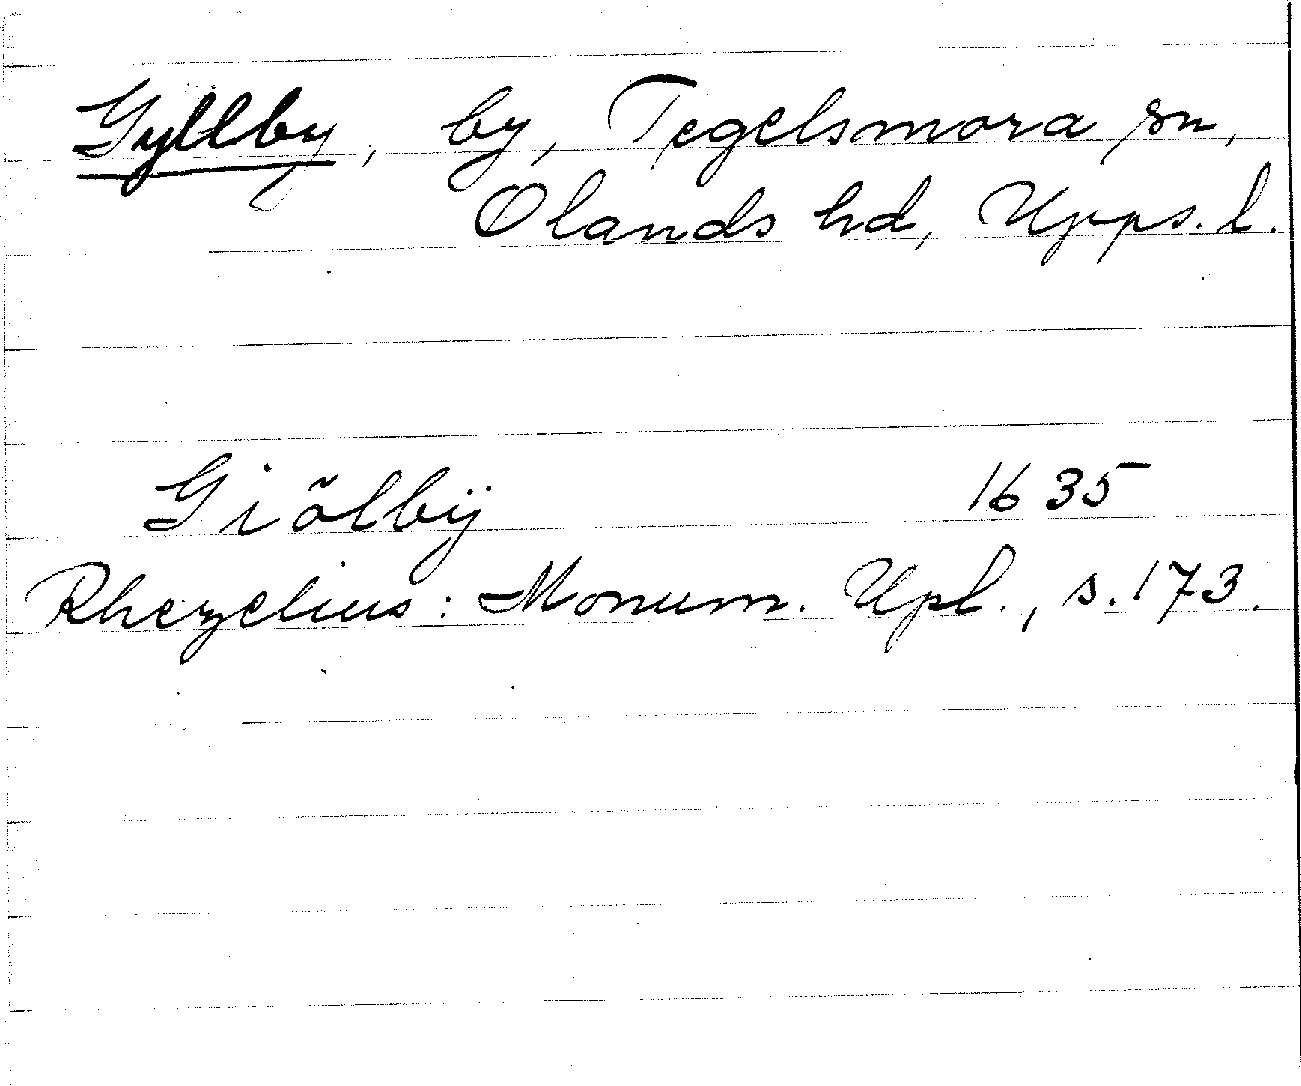 Gyllby, by, Tegelsmora sn,
Olands hd, Upps. l.
Giõlbÿ 1635
Rhezelius: Monum. Upl., s. 173.